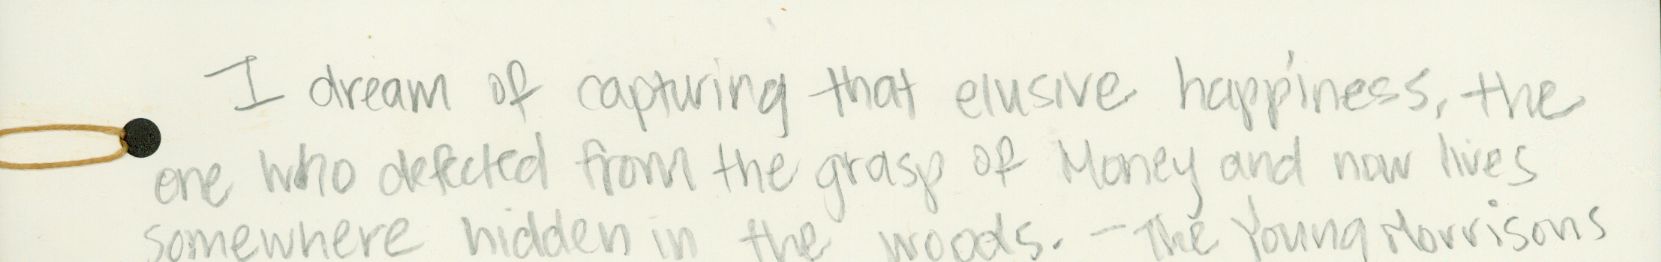 I dream of capturing that elusive happiness, the
one who defected from the grasp of Money and now lives
somewhere hidden in the woods. - The Young Morrisons